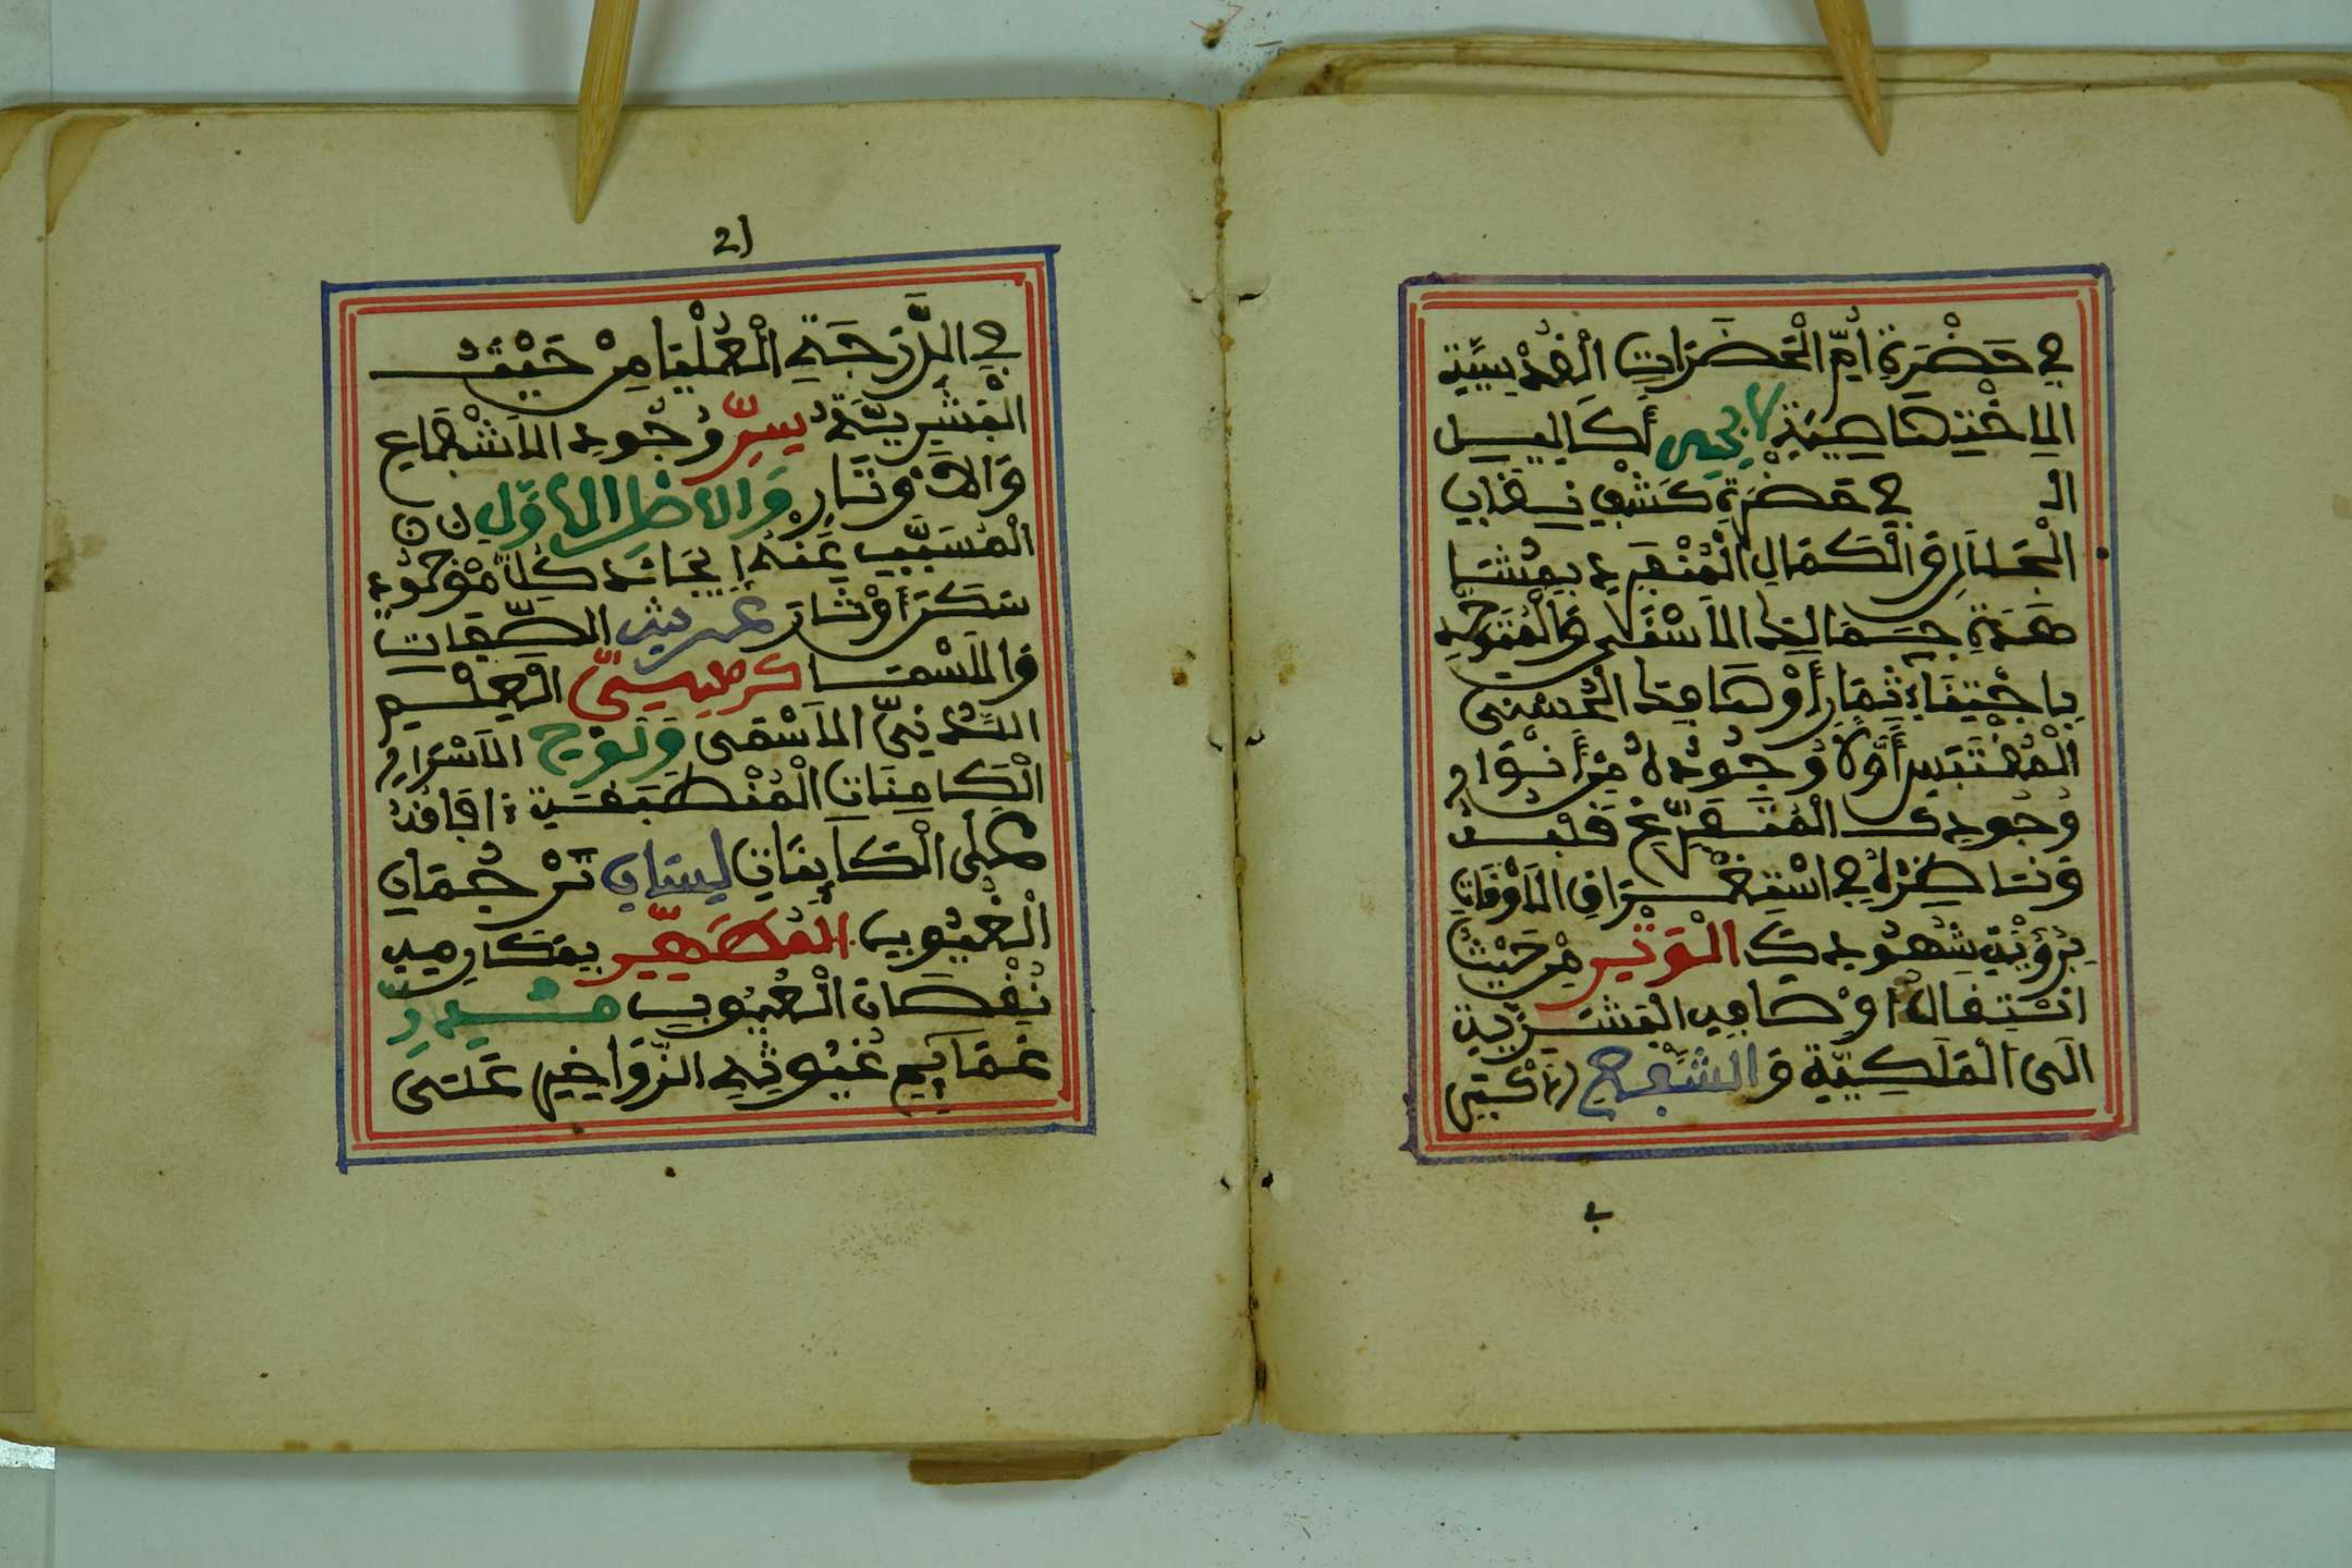 في حَضْرَةِ أُمِّ الْحَضَرَاتِ الْقُدْسِيَّةِ
الِاخْتِصَاصِيَّةِ لا يحيى أكاليل
الـ في حَضْرَةِ كَشْفِ نِقَابِ
الْجَلَالِ وَالْكَمَالِ الْمُنْفَرِدِ
جَمَالِكَ الأَسْنَى وَالْمُتَوَحِّدِ
بِاجْتِنَاءِ ثِمَارِ أَوْصَافِكَ الْحُسْنَى
الْمُقْتَبَسِ أَوَّلًا وُجُودُهُ مِنْ أَنْوَارِ
وُجُودِكَ الْمُتَفَرِّغِ قلبه
وَنَاظِرُهُ في اسْتِغْرَاقِ الأَوْقَاتِ
بِرُؤْيَةِ شُهُودِكَ الْوَتْرِ مِنْ حَيْثُ
انْتِقَالُ أَوْصَافِهِ الْبَشَرِيَّةِ
الَى الْمَلَكِيَّةِ وَالشَّفْعِ
ب
21
في الدَّرَجَةِ الْعُلْيَا مِنْ حَيْثُ
الْبَشَرِيَّةُ سِرِّ وُجُودِ الأَشْفَاعِ
وَالأَوْتَارِ وَالاصل الاوَّلِ
الْمُسَبَّبِ عَنْهُ إيجَادُ كُلِّ مَوْجُودٍ
الصِّفَاتِ
وَالأَسْمَا كرسيّ الْعِلْمِ
اللَّدُنِيِّ الأَسْمَى وَلَوْحِ الأَسْرَارِ
الْكَامِنَاتِ الْمُنْطَبِقَةِ
عَلَى الْكَائِنَاتِ لِسَانِ تَرْجُمَانِ
الْغُيُوبِ الْمُطَهِّرِ بِمَكَارِمِهِ
نُقْصَانَ الْعُيُوبِ
غَمَائِمِ غُيُوثِهِ الزَّوَاخِرِ عَلَى